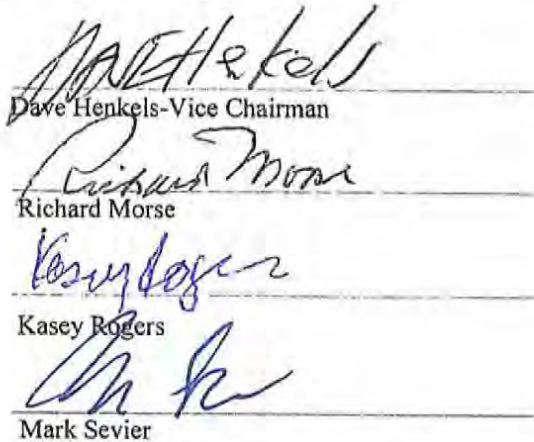 Dave Henkels
Dave Henkels-Vice Chairman
Richard Morse
Richard Morse
Kasey Rogers
Kasey Rogers
Mark Sevier